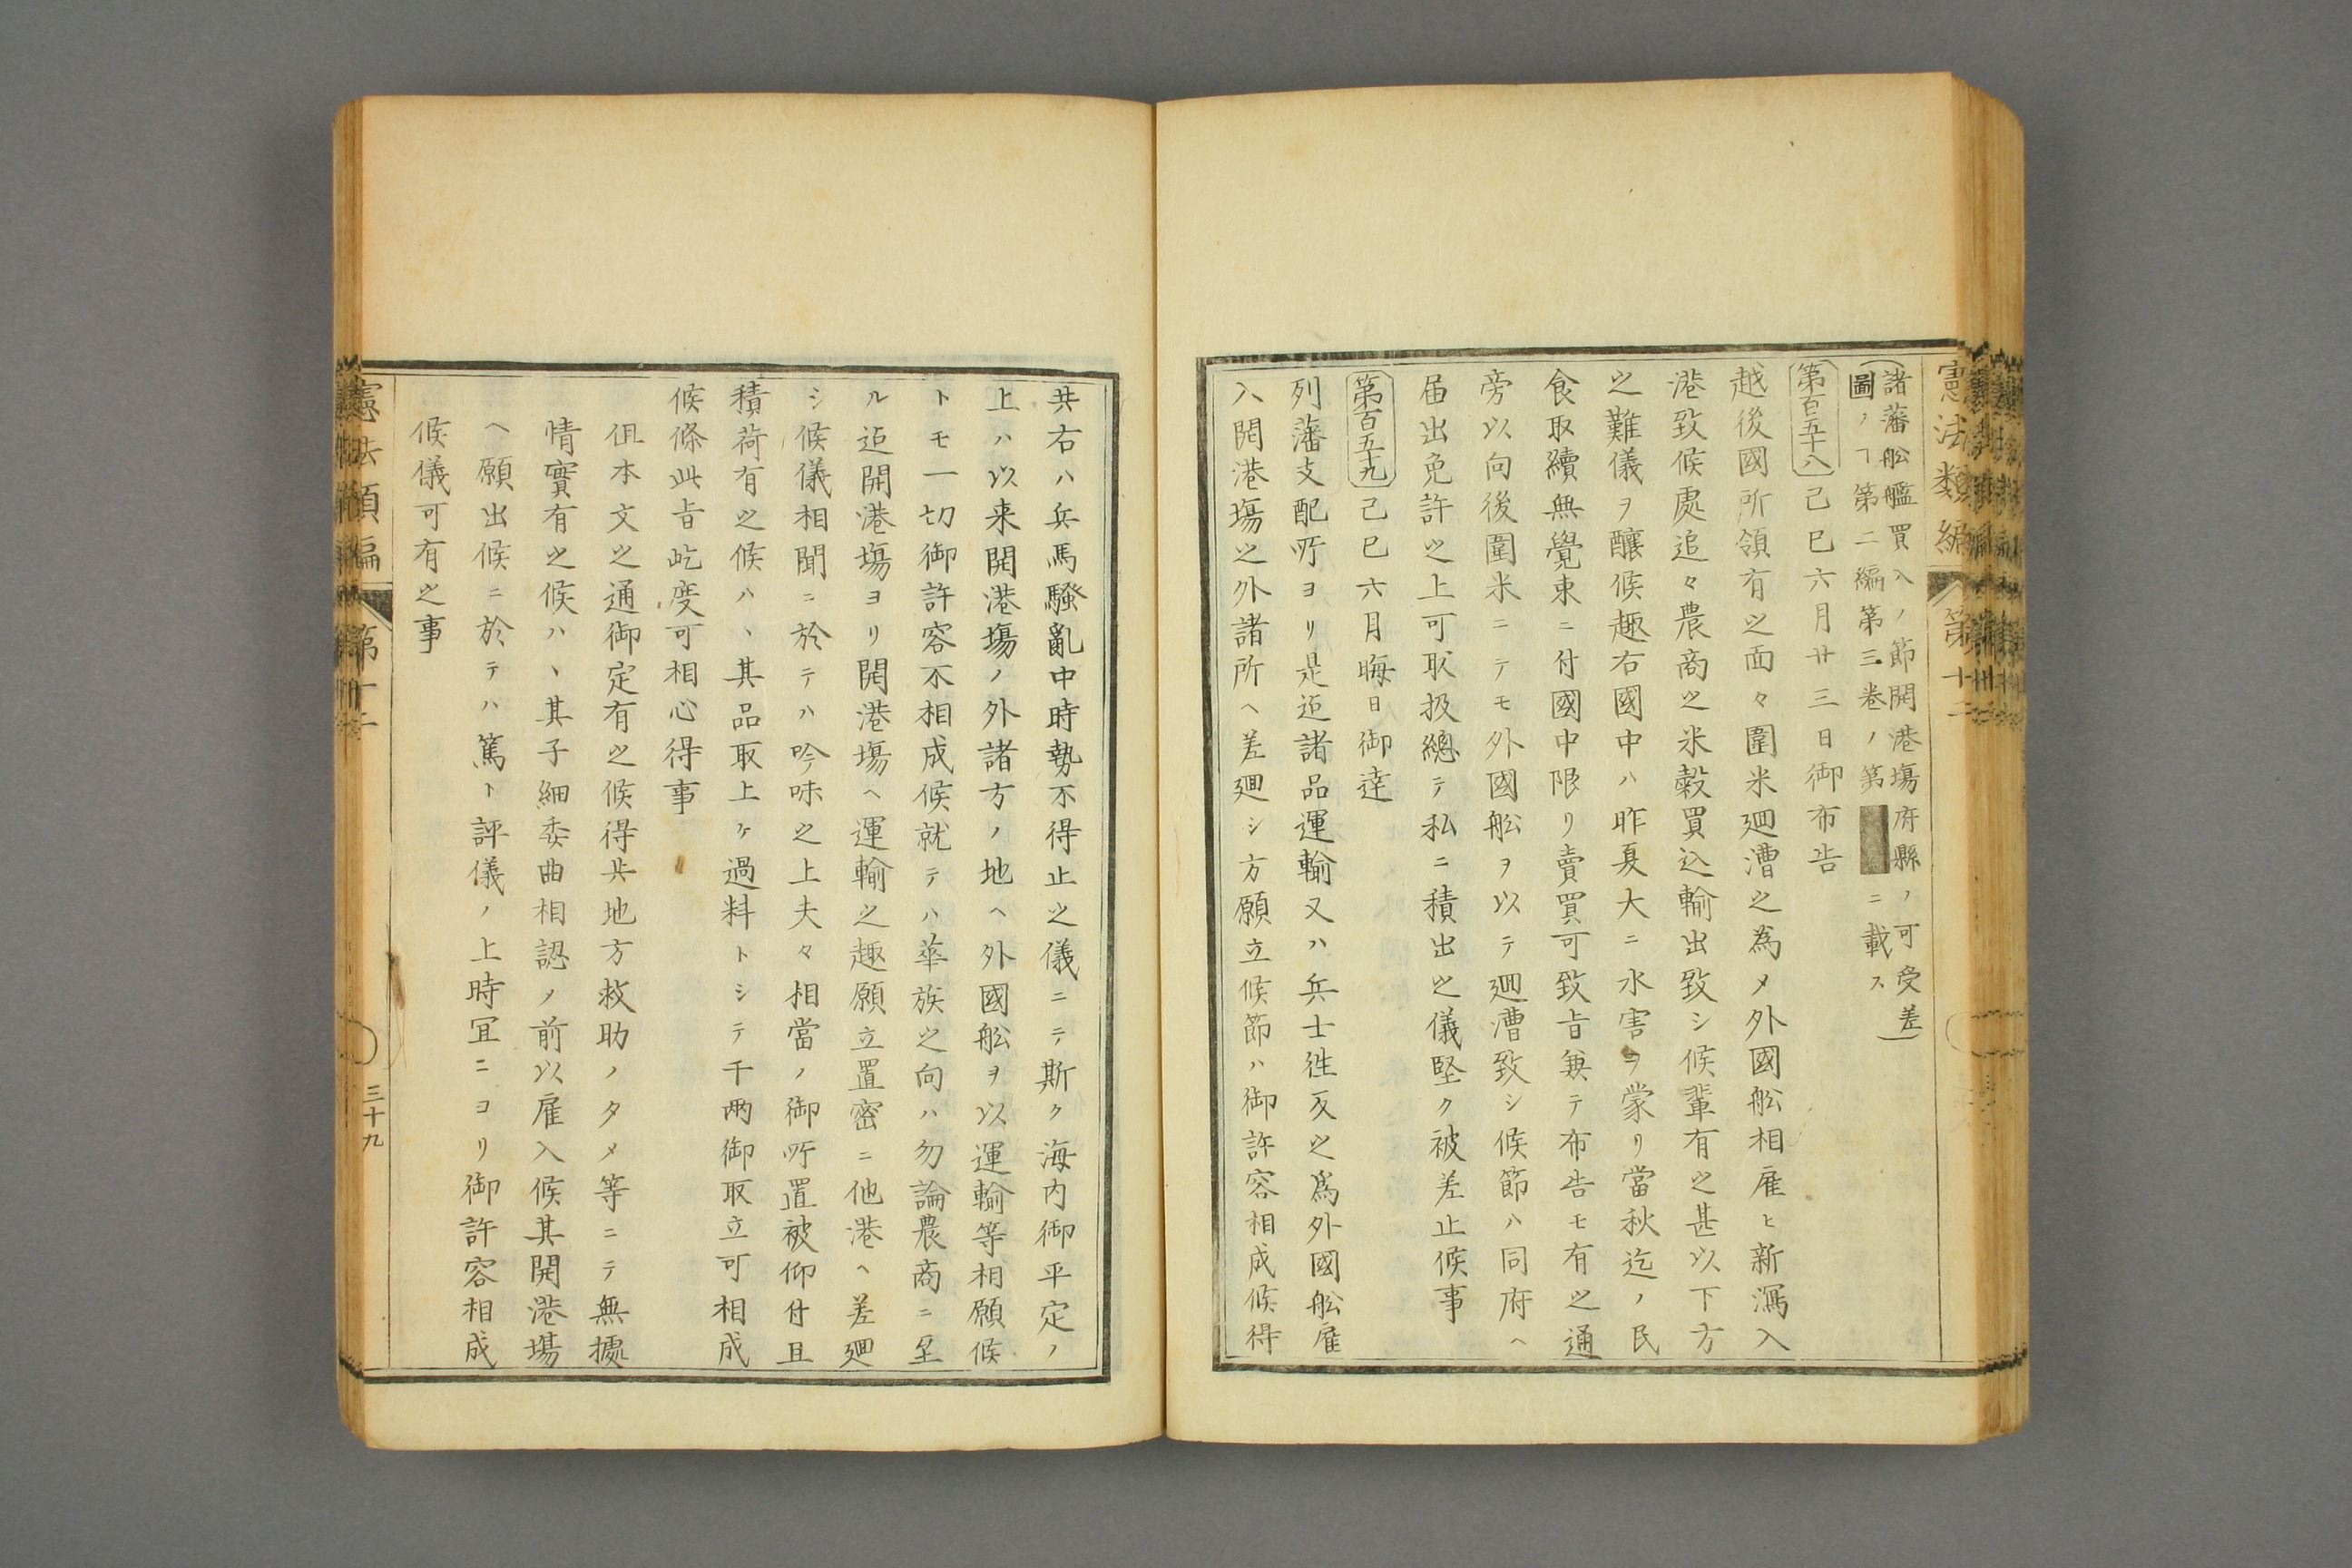 憲法類編 第十二
(諸藩舩艦買入ノ節開港塲府縣ノ可受差
圖ノヿ第二編第三卷ノ第 ニ載ス
第百五十八 己巳六月廿三日御布告
越後國所領有之面々圍米廻漕之為メ外國舩相雇ヒ新潟入
港致候處追々農商之米穀買込輸出致シ候輩有之甚以下方
之難儀ヲ釀候趣右國中ハ昨夏大ニ水害ヲ蒙リ當秋迄ノ民
食取續無覺束ニ付國中限リ賣買可致旨兼テ布告モ有之通
旁以向後圍米ニテモ外國舩ヲ以テ廻漕致シ候節ハ同府ヘ
届出免許之上可取扱總テ私ニ積出之儀堅ク被差止候事
第百五十九 己巳六月晦日御達
列藩支配所ヨリ是迄諸品運輸又ハ兵士徃反之為外國舩雇
入開港塲之外諸所ヘ差廻シ方願立候節ハ御許容相成候得
共右ハ兵馬騷亂中時勢不得止之儀ニテ斯ク海内御平定ノ
上ハ以来開港塲ノ外諸方ノ地ヘ外國舩ヲ以運輸等相願候
トモ一切御許容不相成候就テハ華族之向ハ勿論農商ニ至
ル迄開港塲ヨリ開港塲ヘ運輸之趣願立置密ニ他港ヘ差廻
シ候儀相聞ニ於テハ吟味之上夫々相當ノ御所置被仰付且
積荷有之候ハヽ其品取上ケ過料トシテ千两御取立可相成
候條此旨屹度可相心得事
伹本文之通御定有之候得共地方救助ノタメ等ニテ無據
情實有之候ハヽ其子細委曲相認ノ前以雇入候其開港塲
ヘ願出候ニ於テハ篤ト評儀ノ上時冝ニヨリ御許容相成
候儀可有之事
憲法類編 第十二
三十九